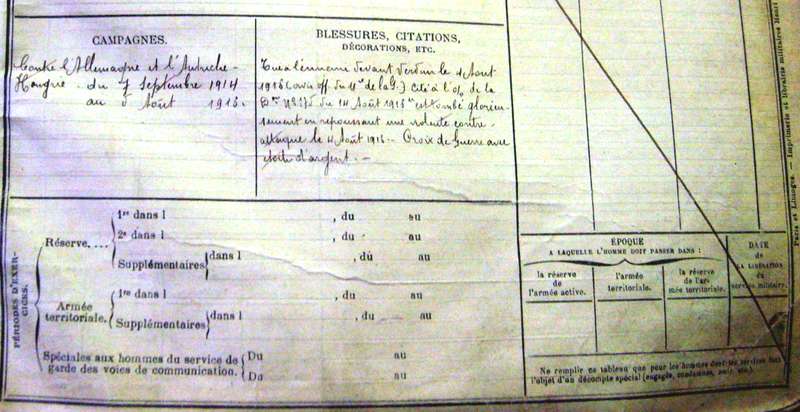 CAMPAGNES.
Contre l'Allemagne et l'Autriche-
Hongrie. du 7 Septembre 1914
au Août 1916.
BLESSURES, CITATIONS,
DÉCORATIONS, ETC.
Tué à l'ennemi devant Verdun le 4 Août
1916 (avis off. du de la G.) Cité à l'o/. de la
du 14 Août 1916 "est tombé glorieu-
sement en repoussant une violente contre-
attaque le 4 Août 1916 - Croix de Guerre avec
étoile d'argent. -
PÉRIODES D'EXER-
CICES.
Réserve. ...
1re dans l , du au
2e dans l , du au
Supplémentaires dans l , du au
Armée
territoriale.
1re dans l , du au
Supplémentaires dans l , du au
Spéciales aux hommes du service de
garde des voies de communication.
Du au
Du au
ÉPOQUE
A LAQUELLE L'HOMME DOIT PASSER DANS :
la réserve
de
l'armée active.
l'armée
territoriale.
la réserve
de l'ar-
mée territoriale.
DATE
de
LA LIBÉRATION
du
service militaire.
Ne remplir ce tableau que pour les hommes dont les services font
l'objet d'un décompte spécial (engagés, condamnés, omis, etc.)
Paris et Limoges. — Imprimerie et librairie militaires Henri